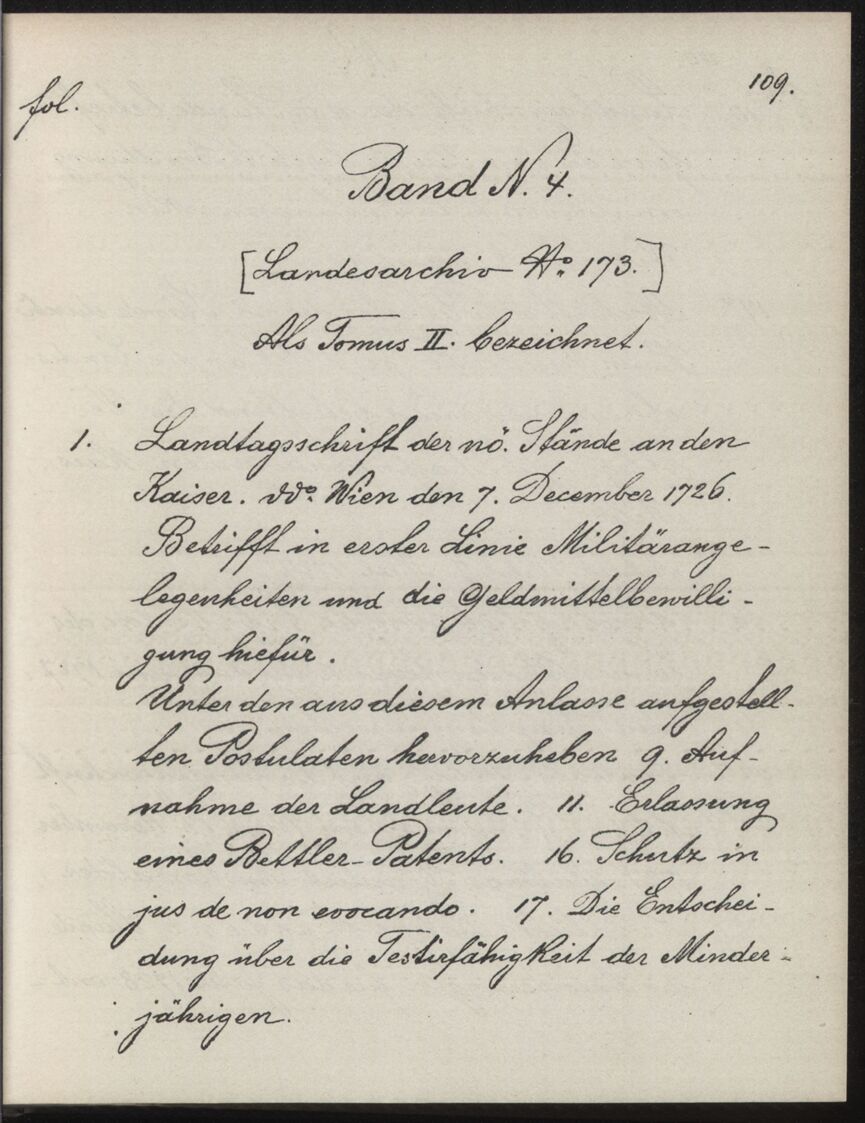 109.
fol.
Band N. 4.
[Landesarchiv No. 173.]
Als Tomus II. bezeichnet.
1. Landtagsschrift der nö. Stände an den
Kaiser. ddo. Wien den 7. December 1726.
Betrifft in erster Linie Militärange-
legenheiten und die Geldmittelbewilli-
gung hiefür.
Unter den aus diesem Anlasse aufgestell-
ten Postulaten hervorzuheben 9. Auf-
nahme der Landleute. 11. Erlassung
eines Bettler-Patents. 16. Schutz in
jus de non evocando. 17. Die Entschei-
dung über die Testirfähigkeit der Minder-
jährigen.